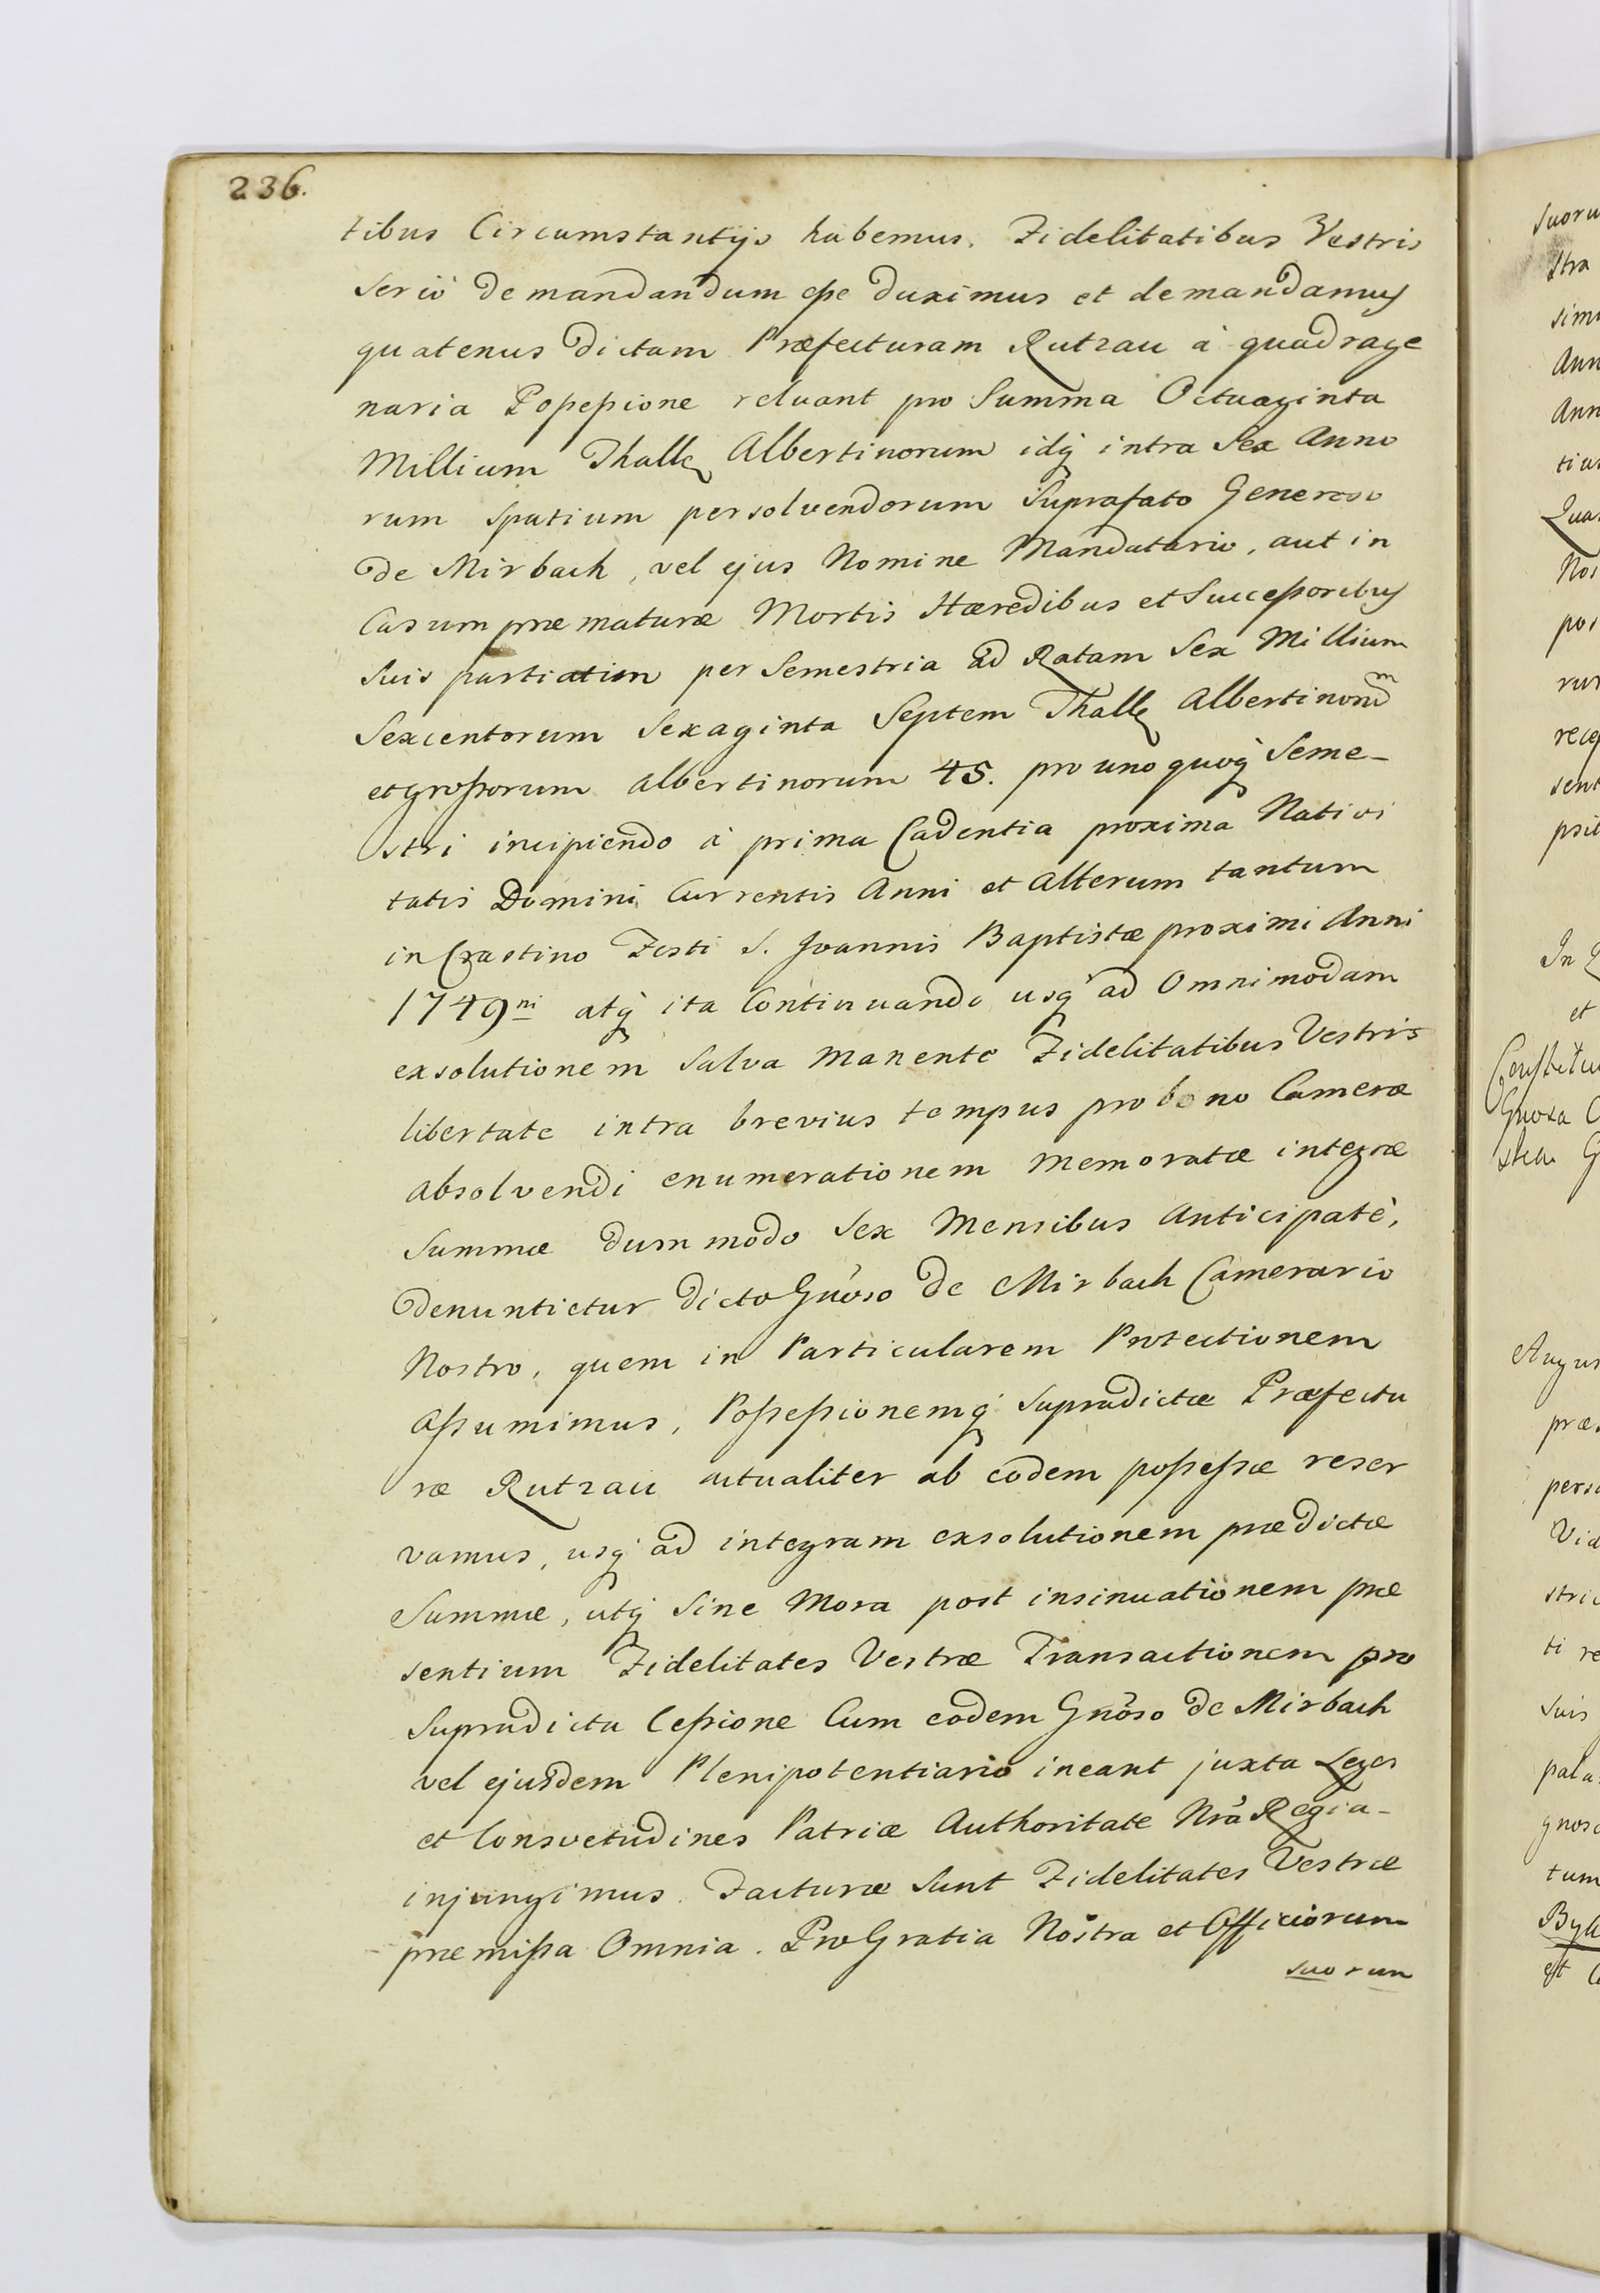 236.
tibus Circumstantijs habemus. Fidelitatibus Vestris
Seriò demandandum esse duximus et demandamus
quatenus dictam Præfecturam Rutzau à quadrage
naria Possessione reluant pro Summa Octuaginta
Millium Thall. Albertinorum idq́ intra Sex Anno
rum spatium persolvendorum Suprafato Generoso
de Mirbach, vel ejus Nomine Mandatario, aut in
Casum præmaturæ Mortis Hæredibus et Successoribus
Suis partiatim per Semestria ad Ratam Sex Millium
Sexcentorum Sexaginta Septem Thall. Albertinorũm
et grossorum albertinorum 45. pro uno quoq́ Seme-
stri incipiendo à prima Cadentia proxima Nativi
tatis Domini Currentis Anni et Alterum tantum
in Crastino Festi S. Joannis Baptistæ proximi Anni
1749ni atq́ ita Continuando usq́ ad Omnimodam
exsolutionem Salva manente Fidelitatibus Vestris
libertate intra brevius tempus pro bono Cameræ
absolvendi enumerationem memoratæ integræ
Summæ dummodo Sex Mensibus Anticipatè,
denuntietur dicto Gnõso de Mirbach Camerario
Nostro, quem in Particularem Protectionem
Assumimus, Possessionemq́ Supradictæ Præfectu
ræ Rutzau actualiter ab eodem possessæ reser
vamus, usq́ ad integram exsolutionem prædictæ
Summæ, utq́ Sine Mora post insinuationem præ
sentium Fidelitates Vestræ Transactionem pro
Supradicta Cessione Cum eodem Gnõso de Mirbach
vel ejusdem Plenipotentiario ineant juxta Leges
et Consvetudines Patriæ Authoritate Nrã Regia-
injungimus. Facturæ Sunt Fidelitates Vestræ
præmissa Omnia. Pro Gratia Nostra et Officiorum
suorum